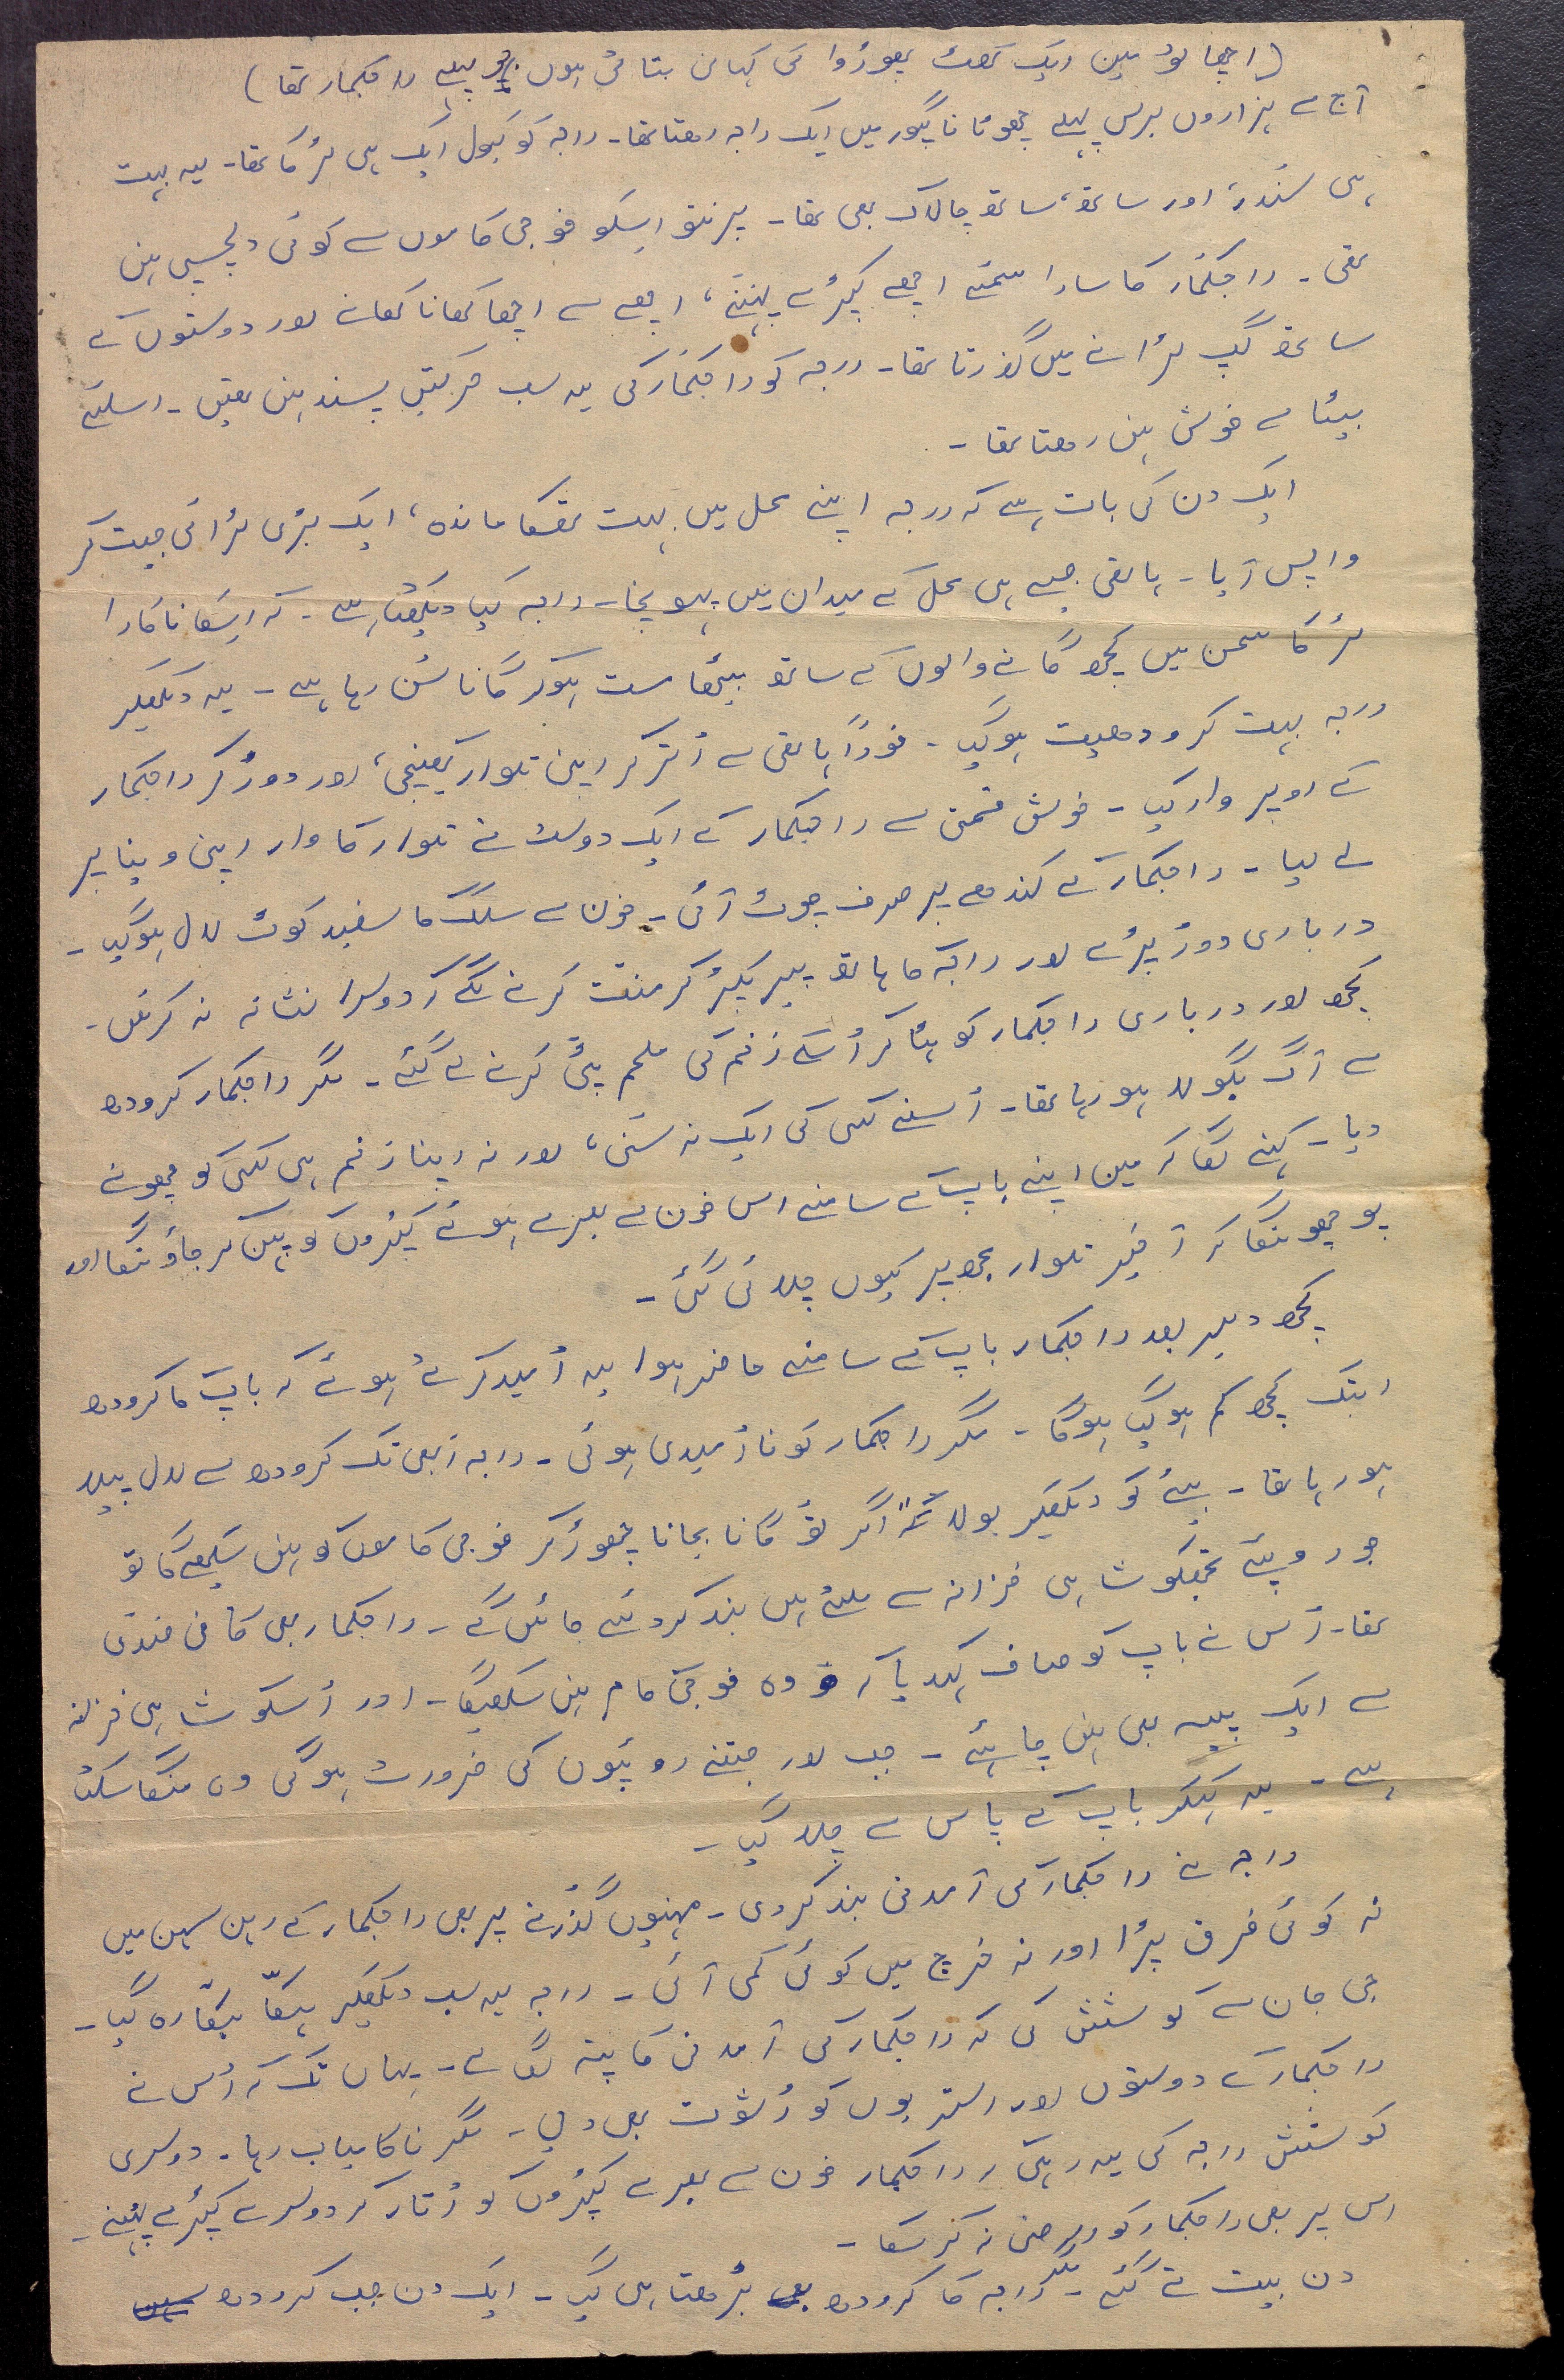 (اچھا تو میں ایک کھٹ بھوڑوا کی کہانی بتاتی ہوں جو پہلے راجکمار تھا)
آج سے ہزاروں برس پہلے چھوٹا ناگپور میں ایک راجہ رھتا تھا۔ راجہ کو کیول ایک ہی لڑکا تھا۔ یہ بہت
ہی سُندر، اور ساتھ، ساتھ چالاک بھی تھا۔ پرنتو اِسکو فوجی کاموں سے کوئی دلچسپی نہیں
تھی۔ راجکُمار کا سارا سمئے اچھے کپڑے پہننے، اچھے سے اچھا کھانا کھانے اور دوستوں کے
ساتھ گپ لڑانے میں گذرتا تھا۔ راجہ کو راجکُمار کی یہ سب حرکتیں پسند نہیں تھیں۔ اسلئے
بیٹا سے خوش نہیں رھتا تھا۔
ایک دن کی بات ہے کہ راجہ اپنے محل میں بہت تھکا ماندہ، ایک بڑی لڑائی جیت کر
واپس آیا۔ ہاتھی جیسے ہی محل کے میدان میں پہونچا۔ راجہ کیا دیکھتا ہے۔ کہ اِسکا ناکارا
لڑکا سحن میں کچھ گانے والوں کے ساتھ بیٹھا مست ہوکر گانا سُن رہا ہے۔ یہ دیکھکر
راجہ بہت کرودھیت ہوگیا۔ فوراً ہاتھی سے اُتر کر اپنی تلوار کھینچی، اور دوڑ کر راجکمار
کے اوپر وار کیا۔ خوش قسمتی سے راجکمار کے ایک دوست نے تلوار کا وار اپنی وینا پر
لے لیا۔ راجکمار کے کندھے پر صرف چوٹ آئی۔ خون سے سلک کا سفید کوٹ لال ہوگیا۔
درباری دوڑ پڑے اور راجہ کا ہاتھ پیر پکڑ کر منّت کرنے لگے کہ دوسرا نشانہ نہ کریں۔
کچھ اور درباری راجکمار کو ہٹا کر اُسکے زخم کی ملحم پٹی کرنے لے گئے۔ مگر راجکمار کرودھ
سے آگ بگولا ہو رہا تھا۔ اُسنے کسی کی ایک نہ سُنی، اور نہ اپنا زخم ہی کسی کو چھونے
دیا۔ کہنے لگا کہ میں اپنے باپ کے سامنے اس خون سے بھرے ہوئے کپڑوں کو پہن کر جاؤنگا اور
پوچھونگا کہ آخیر تلوار مجھ پر کیوں چلائی گئی۔
کچھ دیر بعد راجکمار باپ کے سامنے حاضر ہوا یہ اُمید کرتے ہوئے کہ باپ کا کرودھ
ابتک کچھ کم ہوگیا ہوگا۔ مگر راجکمار کو نااُمیدی ہوئی۔ راجہ ابھی تک کرودھ سے لال پیلا
ہو رہا تھا۔ بیٹے کو دیکھکر بولا کہ "اگر تو گانا بجانا چھوڑ کر فوجی کاموں کو نہیں سیکھے گا تو
جو روپئے تجھکو شاہی خزانہ سے ملتے ہیں بند کر دئیے جائیں گے۔ راجکمار بھی کافی ضدی
تھا۔ اُس نے باپ کو صاف کہدیا کہ وہ فوجی کام نہیں سکھیگا۔ اور اُسکو شاہی خزانہ
سے ایک پیسہ بھی نہیں چاہئے۔ جب اور جتنے روپیوں کی ضرورت ہوگی وہ منگا سکتا
ہے۔ یہ کہکر باپ کے پاس سے چلا گیا۔
راجہ نے راجکمار کی آمدنی بند کر دی۔ مہنیوں گذرنے پر بھی راجکمار کے رہن سہن میں
نہ کوئی فرق پڑا اور نہ خرچ میں کوئی کمی آئی۔ راجہ یہ سب دیکھکر ہکّا بکّا رہ گیا۔
جی جان سے کوشش کی کہ راجکمار کی آمدنی کا پتہ لگالے۔ یہاں تک کہ اُس نے
راجکمار کے دوستوں اور استریوں کو رُشوت بھی دی۔ مگر ناکامیاب رہا۔ دوسری
کوشش راجہ کی یہ رہی کہ راجکمار خون سے بھرے کپڑوں کو اُتار کر دوسرے کپڑے پہنے۔
اس پر بھی راجکمار کو راضی نہ کر سکا۔
دن بیت تے گئے۔ مگر راجہ کا کرودھ بڑھتا ہی گیا۔ ایک دن جب کرودھ